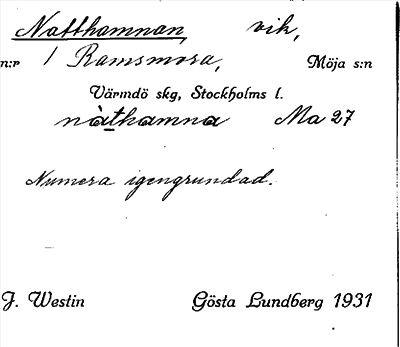 Natthamnan, vik,
n:r 1 Ramsmora, Möja s:n
Värmdö skg, Stockholms l.
nàthamna Ma 27
Numera igengrundad.
J. Westin Gösta Lundberg 1931